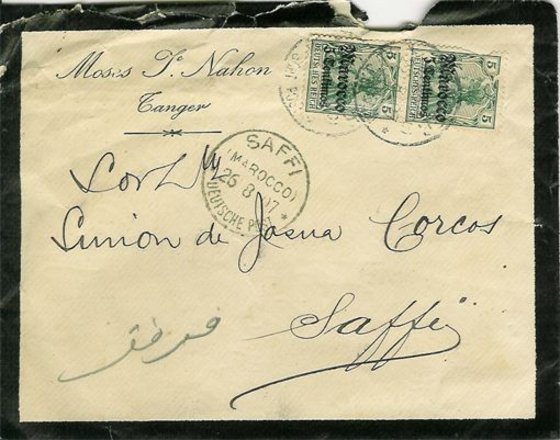 Moses J. Nahon
Tanger
5
DEUTSCHES REICH
Marocco
5 Centimos
5
DEUTSCHES REICH
Marocco
5 Centimos
SAFFI
(MAROCCO)
26 8 07
DEUTSCHE POST
*
de Josua Corcos
Saffi